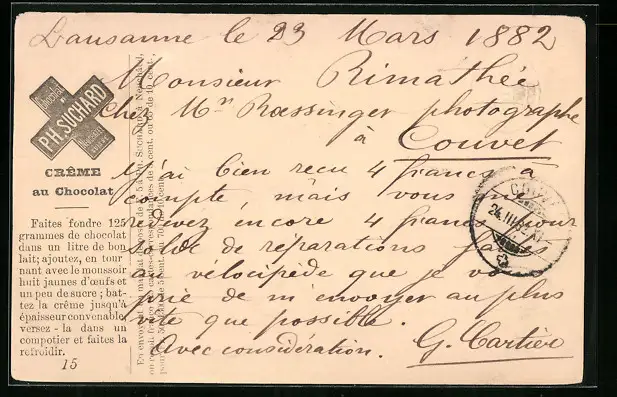 Lausanne le 23 Mars 1882
Monsieur Rimathé
chez Mr Rœssinger photographe
à Couvet
J'ai bien reçu 4 francs à
compte, mais vous me
redevez encore 4 francs pour
solde de réparations faites
au vélocipède que je vs
prie de m'envoyer au plus
vite que possible.
Avec considération. G. Cartier
Chocolat
PH. SUCHARD
CRÊME
au Chocolat
Faites fondre 125
grammes de chocolat
dans un litre de bon
lait; ajoutez, en tour
nant avec le moussoir
huit jaunes d'œufs et
un peu de sucre; bat-
tez la crème jusqu'à
épaisseur convenable,
versez-la dans un
compotier et faites la
refroidir.
15
COUVET
24 III 82 XI